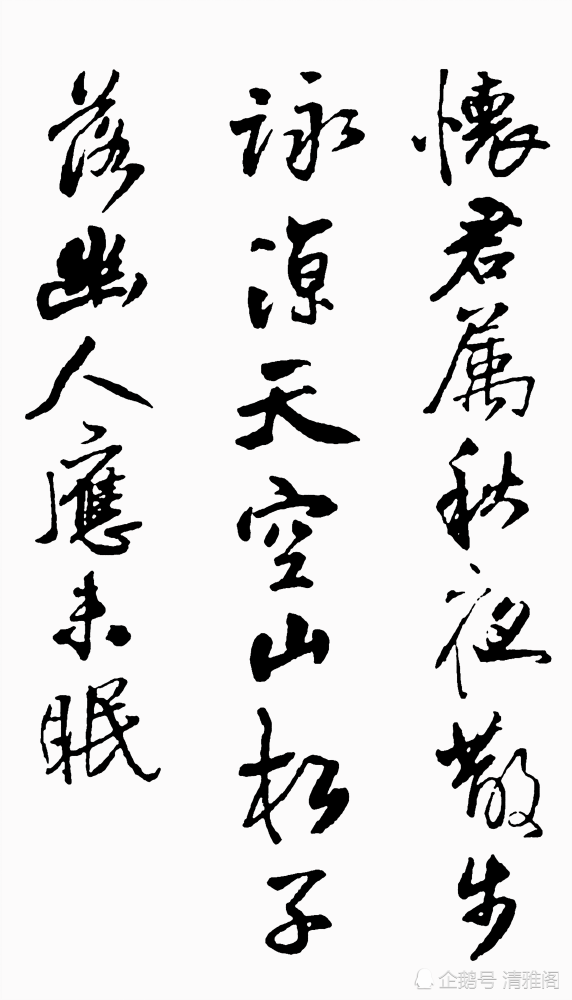 懷君屬秋夜散步
詠涼天空山松子
落幽人應未眠
企鹅号 清雅阁